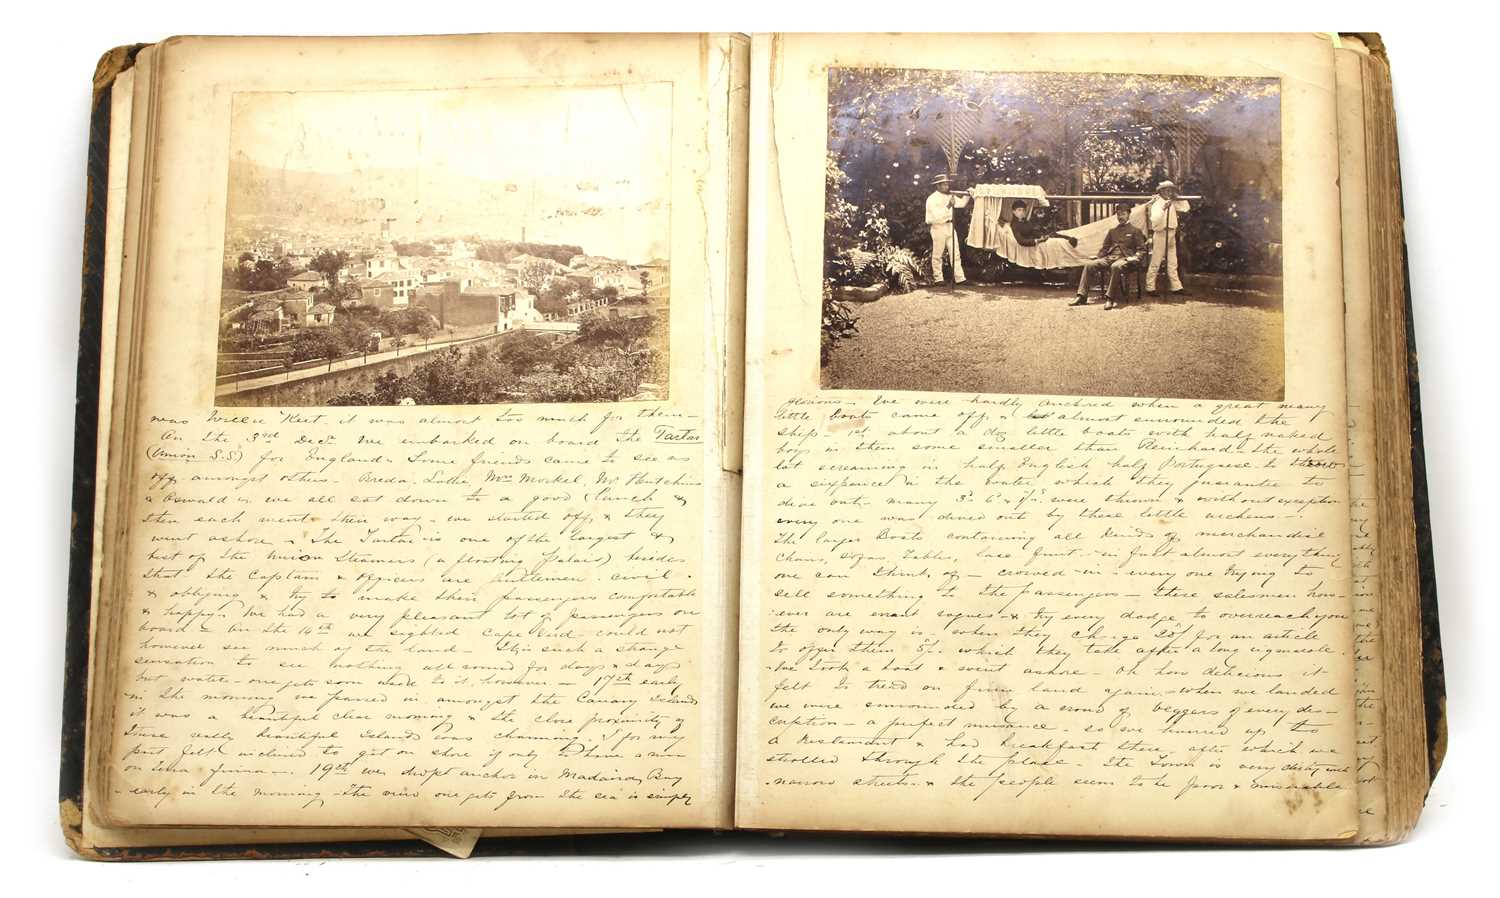 was Willie Kert. it was almost too much for them -
On the 3rd Decr. we embarked on board the Tartar
(Union S.S.) for England - Some friends came to see us
off, amongst others - Breda, Lothe, Mrs Morkel, Mr Hutchins
& Oswald - we all sat down to a good lunch &
then each went their way - we started off & they
went ashore - The Tartar is one of the largest &
best of the Union Steamers (a floating Palais) besides
that the Captain & Officers are gentlemen - civil -
& obliging & try to make their passengers comfortable
& happy. We had a very pleasant lot of passengers on
board - On the 14th we sighted Cape Verd - could not
however see much of the land - It is such a strange
sensation to see nothing all round for days & days
but water - one gets soon used to it, however. - 17th early
in the morning we passed in amongst the Canary Islands
it was a beautiful clear morning & the close proximity of
some really beautiful Islands was charming. I for my
part felt inclined to get on shore if only to have a run
on terra firma -. 19th we dropt anchor in Madeira Bay
early in the morning - The view one gets from the sea is simply
glorious - We were hardly anchored when a great many
little boats came off & almost surrounded the
ship - 1st about a doz little boats with half naked
boys in them some smaller than Reinhard - the whole
lot screaming in half English half Portuguese to throw
a sixpence in the water which they guarantee to
dive out - many 3d 6d & 1/- were thrown & without exception
every one was dived out by these little urchens -
The larger Boats containing all kinds of merchandise
Chairs, Sofas, Tables, lace fruit - in fact almost everything
one can think of - crowed in - every one trying to
sell something to the passengers - these salesmen how-
-ever are errant rogues - & try every dodge to overreach you
the only way is when they charge 20/- for an article
to offer them 5/- which they take after a long rigmarole.
We took a boat & went ashore - Oh how delicious it
felt to tread on firm land again - when we landed
we were surrounded by a crowd of beggers of every des-
-cription - a perfect nuisance - so we hurried up to
a Restaurant & had breakfast there, after which we
strolled through the place - The Town is very dirty with
narrow streets - & the people seem to be poor & miserable